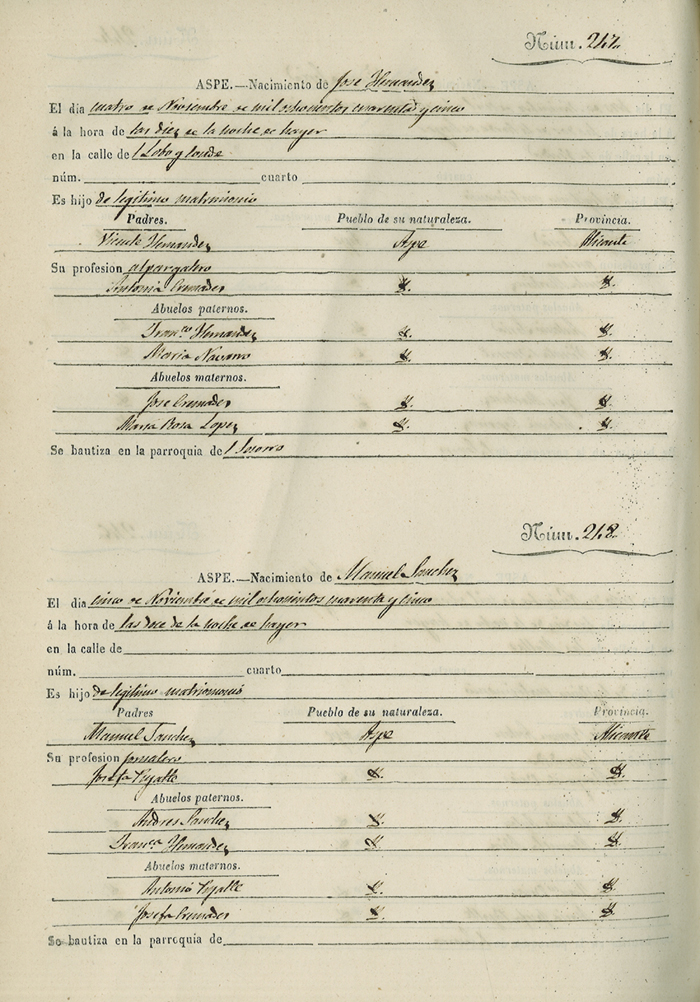 Núm. 247.
ASPE.—Nacimiento de Jose Hernandez
El dia cuatro de Noviembre de mil ochocientos cuarenta y cinco
á la hora de las diez de la noche de hayer
en la calle de
núm. cuarto
Es hijo de legitimo matrimonio
Padres. Pueblo de su naturaleza. Provincia.
Vicente Hernandez Aspe Alicante
Su profesion alpargatero
Antonia Cremades Id. Id.
Abuelos paternos.
Franco Hernandez Id. Id.
Maria Navarro Id. Id.
Abuelos maternos.
Jose Cremades Id. Id.
Maria Rosa Lopez Id. Id.
Se bautiza en la parroquia de l Socorro
Núm. 248
ASPE.—Nacimiento de Manuel Sanchez
El dia cinco de Noviembre de mil ochocientos cuarenta y cinco
á la hora de las doce de la noche de hayer
en la calle de
núm. cuarto
Es hijo de legitimo matrimonio
Padres Pueblo de su naturaleza. Provincia.
Manuel Sanchez Aspe Alicante
Su profesion jornalero
Josefa Id. Id.
Abuelos paternos.
Andres Sanchez Id. Id.
Franca Hernandez Id. Id.
Abuelos maternos.
Antonio Id. Id.
Josefa Cremades Id. Id.
Se bautiza en la parroquia de